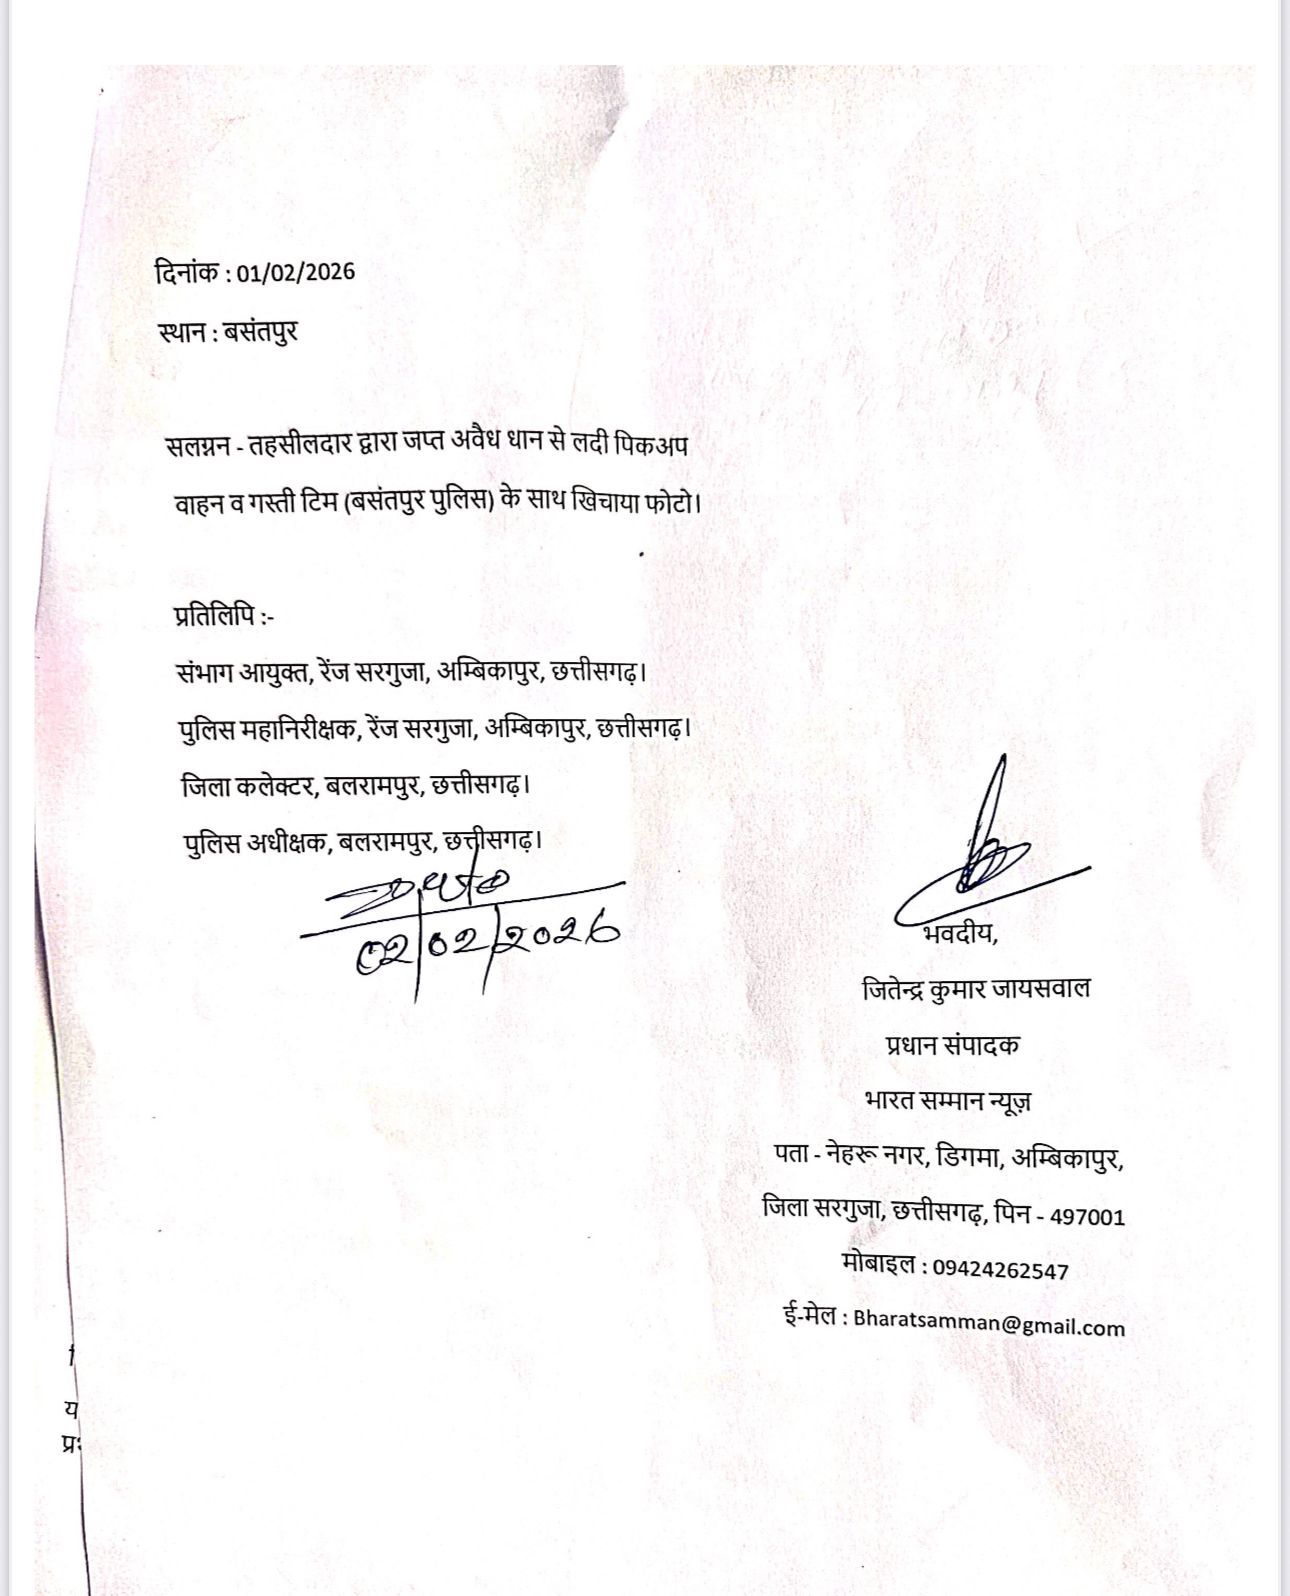 दिनांक : 01/02/2026
स्थान : बसंतपुर
सलग्नन - तहसीलदार द्वारा जप्त अवैध धान से लदी पिकअप
वाहन व गस्ती टिम (बसंतपुर पुलिस) के साथ खिचाया फोटो।
प्रतिलिपि :-
संभाग आयुक्त, रेंज सरगुजा, अम्बिकापुर, छत्तीसगढ़।
पुलिस महानिरीक्षक, रेंज सरगुजा, अम्बिकापुर, छत्तीसगढ़।
जिला कलेक्टर, बलरामपुर, छत्तीसगढ़।
पुलिस अधीक्षक, बलरामपुर, छत्तीसगढ़।
02/02/2026
भवदीय,
जितेन्द्र कुमार जायसवाल
प्रधान संपादक
भारत सम्मान न्यूज़
पता - नेहरू नगर, डिगमा, अम्बिकापुर,
जिला सरगुजा, छत्तीसगढ़, पिन - 497001
मोबाइल : 09424262547
ई-मेल : Bharatsamman@gmail.com
य